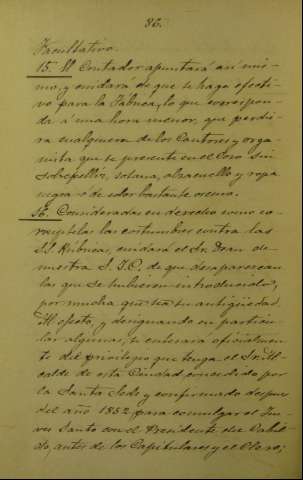 86.
Facultativo.
15. El Contador apuntará así mis-
mo, y cuidará de que se haga efecti-
vo para la Fábrica, lo que correspon-
da á una hora menor, que perdie-
ra cualquiera de los Cantores y orga-
nista que se presente en el Coro sin
Sobrepelliz, sotana, alzacuello y ropa
negra ó de color bastante oscuro.
16. Consideradas en derecho como co-
rruptelas las costumbres contra las
SS. Rúbricas, cuidará el Sr. Dean de
nuestra S. I. C. de que desaparezcan
las que se hubieren introducido,
por mucha que sea su antigüedad.
Al efecto, y designando en particu-
lar algunas, se enterará oficialmen-
te del privilegio que tenga el Sr. Al-
calde de esta Ciudad concedido por
la Santa Sede y confirmado despues
del año 1852 para comulgar el Jue-
ves Santo con el Presidente del Cabil-
do, antes de los Capitulares y el Clero;